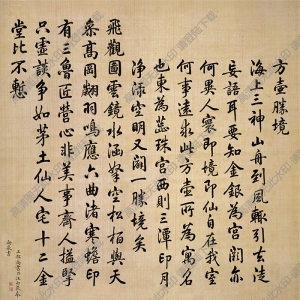 方壺勝境
海上三神山舟到風輒引去徒
妄語耳要知金銀為宮闕亦
何異人寰即境即仙自在我室
何事遠求此方壺所為寓名
也東為蕊珠宮西則三潭印月
淨淥空明又闢一勝境矣
飛觀圖雲鏡水涵拏空松柏與天
參高岡翽羽鳴應六曲渚寒蟾印
有三魯匠營心非美事齊人搤掔
只虛談爭如茅土仙人宅十二金
堂比不慙
工部尚書臣汪由敦奉
敕敬書